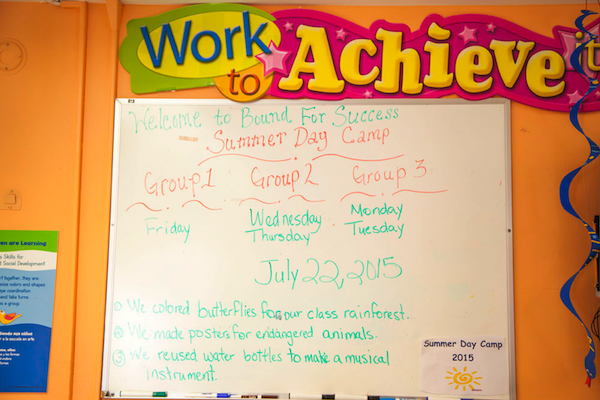 Work to Achieve it
Welcome to Bound For Success
Summer Day Camp
Group 1 Group 2 Group 3
Friday Wednesday Monday
Thursday Tuesday
July 22, 2015
① We colored butterflies for our class rainforest.
② We made posters for endangered animals.
③ We reused water bottles to make a musical
instrument.
Summer Day Camp
2015
en are Learning
Skills for
Social Development